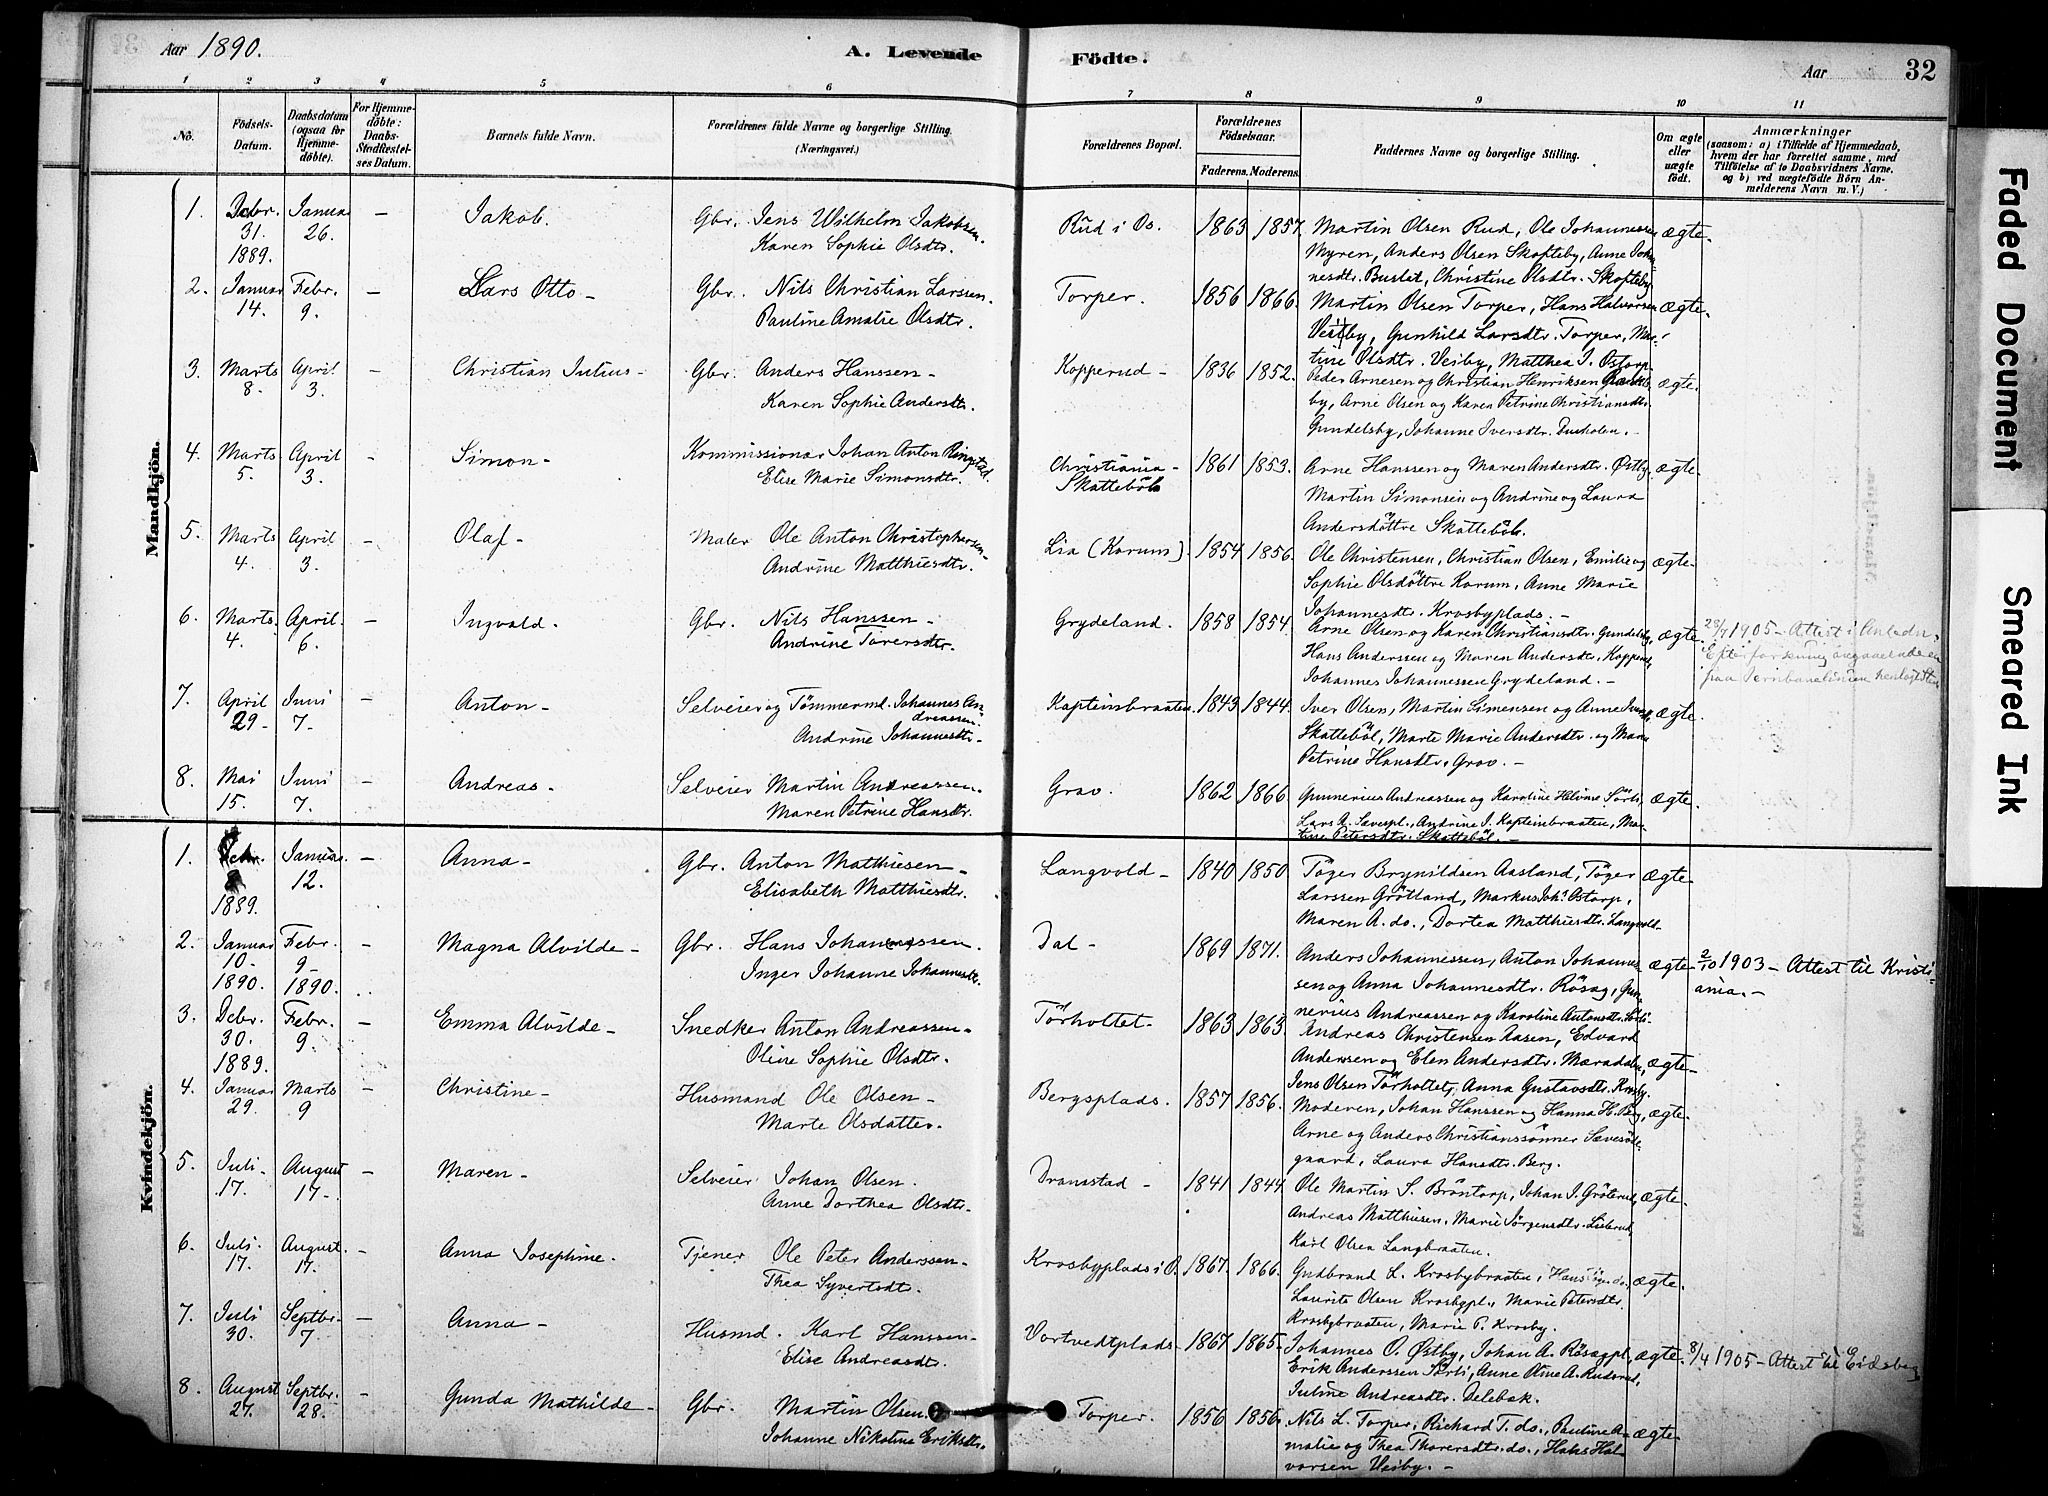 Aar 1890.
A. Levende Födte.
Aar
32
1 2 3 4 5 6 7 8 9 10 11
No.
Födsels-Datum.
Daabsdatum (ogsaa for Hjemme-döbte).
For Hjemme-döbte: Daabs-Stadfæstel-ses Datum.
Barnets fulde Navn.
Forældrenes fulde Navne og borgerlige Stilling.
(Næringsvei.)
Forældrenes Bopæl.
Forældrenes Födselsaar.
Faderens. Moderens.
Faddernes Navne og borgerlige Stilling.
Om ægte eller uægte födt.
Anmærkninger
(saasom: a) i Tilfælde af Hjemmedaab,
hvem der har forrettet samme, med
Tilföielse af to Daabsvidners Navne,
og b) ved uægtefödte Börn An-
melderens Navn m. V.)
Mandkjön.
1. Debr. 31. 1889. Januar 26. – Jakob. Gbr. Jens Wilhelm Jakobsen. Karen Sophie Olsdtr. Rud i Os. 1863 1857. Martin Olsen Rud, Ole Johannessen
Myren, Anders Olsen Skofteby, Anne Johan-
nesdtr. Bustet, Christine Olsdtr. Skofteby ægte.
2. Januar 14. Febr. 9. – Lars Otto – Gbr. Nils Christian Larssen. Pauline Amalie Olsdtr. Torper. 1856 1866. Martin Olsen Torper, Hans Halvorsen
Veisby, Gunhild Larsdtr. Torper, Mar-
tine Olsdtr. Veiby, Matthea J. Ostorp. ægte.
3. Marts 8. April 3. – Christian Julius – Gbr. Anders Hanssen – Karen Sophie Andersdtr. Kopperud – 1836 1852. Peder Arnesen og Christian Henriksen
by, Arne Olsen og Karen Petrine Christiansdtr.
Gundelsby, Johanne Iversdtr. ægte.
4. Marts 5. April 3. – Simon – Kommissionær Johan Anton Ringstad. Elise Marie Simonsdtr. Christiania – Skattebøl 1861 1853. Arne Hanssen og Maren Andersdtr. Østby,
Martin Simonsen og Andrine og Laura
Andersdöttre Skatteböl. ægte.
5. Marts 4. April 3. – Olaf – Maler Ole Anton Christophersen – Andrine Matthiesdtr. Lia (Korum). 1854 1856. Ole Christensen, Christian Olsen, Emilie og
Sophie Olsdöttre Korum, Anne Marie
Johannesdtr. Krosbyplads. – ægte.
6. Marts. 4. April. 6. – Ingvald. Gbr. Nils Hanssen – Andrine Torersdtr. Grydeland. 1858 1854. Arne Olsen og Karen Christiansdtr. Gundelsby,
Hans Anderssen og Maren Andersdtr. Kopperud,
Johannes Johannessen Grydeland. – ægte. 28/7 1905 – Attest i Anledn.
Efterforskning angaaende en
paa Jernbanelinien
7. April 29. Juni 7. – Anton – Selveier og Tömmermd. Johannes Andreassen. Andrine Johannesdtr. Kapteinbraaten. 1843 1844. Iver Olsen, Martin Simensen og Anne
Skatteböl, Marte Marie Andersdtr. og Maren
Petrine Hansdtr. Grav. – ægte.
8. Mai 15. Juni 7. – Andreas – Selveier Martin Andreassen. Maren Petrine Hansdtr. Grav. 1862 1866 Gunnerius Andreassen og Karoline Helvine Sörli,
Lars A. Sævespl., Andrine J. Kapteinbraaten, Mar-
tine Petersdtr. Skatteböl. – ægte.
Kvindekjön.
1. Debr. 1889. Januar. 12. – Anna – Gbr. Anton Matthiesen – Elisabeth Matthiesdtr. Langvold – 1840 1850 Töger Brynildsen Aasland, Töger
Larssen Grötland, Markus Johs. Ostorp,
Maren A. do., Dortea Matthiesdtr. Langvold – ægte –
2. Januar 10. 1890. Febr. 9. 1890. – Magna Alvilde – Gbr. Hans Johannessen. Inger Johanne Johannesdtr. Dal – 1869 1871. Anders Johannessen, Anton Johannes-
sen og Anna Johannesdtr. Rösæg, Gun-
nerius Andreassen og Karoline Antonsdtr. Sörli – ægte – 2/10 1903 – Attest til Kristi-
ania. –
3. Debr. 30. 1889. Febr. 9. – Emma Alvilde – Snedker Anton Andreassen – Oline Sophie Olsdtr. Törhottet – 1863 1863 Andreas Christensen Aasen, Edvard
Anderssen og Elen Andersdtr. Mæradalen,
Jens Olsen Törhottet, Anna Gustavsdtr. Krosby. ægte –
4. Januar 29. Marts 9 – Christine – Husmand Ole Olsen – Marte Olsdatter. Bergsplads. 1857 1856. Moderen, Johan Hanssen og Hanna H. Berg,
Arne og Anders Christianssönner Sævesöde-
gaard, Laura Hansdtr. Berg. ægte.
5. Juli 17. August 17. – Maren – Selveier Johan Olsen. Anne Dorthea Olsdtr. Dramstad – 1841 1844 Ole Martin S. Bröntorp, Johan J. Gröterud,
Andreas Matthisen, Marie Jörgensdtr. Lisberud,
Karl Olsen Langbraaten. ægte –
6. Juli. 17. August. 17. – Anna Josephine. Tjener Ole Peter Anderssen – Thea Syvertsdtr. Krosbyplads i O. 1867. 1866. Gudbrand L. Krosbybraaten, Hans do.,
Laurits Olsen Krosbypl., Marie Petersdtr.
Krosbybraaten, Marie P. Krosby. ægte.
7. Juli 30. Septbr. 7 – Anna – Husmd. Karl Hanssen – Elise Andreasdtr. Vortvedtplads – 1867 1865 Johannes O. Østby, Johan A. Rösægpl.,
Erik Anderssen Sörli, Anne Oline A. Rudsrud,
Juline Andreasdtr. Delebæk. ægte. 8/4 1905 – Attest til Eidsberg
8. August 27. Septbr. 28. – Gunda Mathilde – Gbr. Martin Olsen Johanne Nikoline Eriksdtr. Torper. 1856 1856. Nils L. Torper, Richard T. do., Pauline A-
malie og Thea Thorersdtr. do., Hans Hal-
vorsen Veiby. – ægte –
Faded Document
Smeared Ink